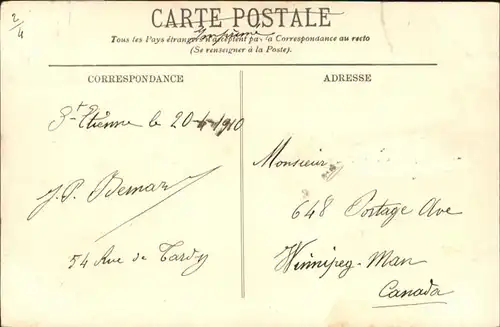 2/4
CARTE POSTALE
Imprimé
Tous les Pays étrangers n'acceptent pas la Correspondance au recto
(Se renseigner à la Poste).
CORRESPONDANCE
St Etienne le 20-4-1910
J. P. Bernard
54 Rue de Tardy
ADRESSE
Monsieur
648 Portage Ave
Winnipeg-Man
Canada